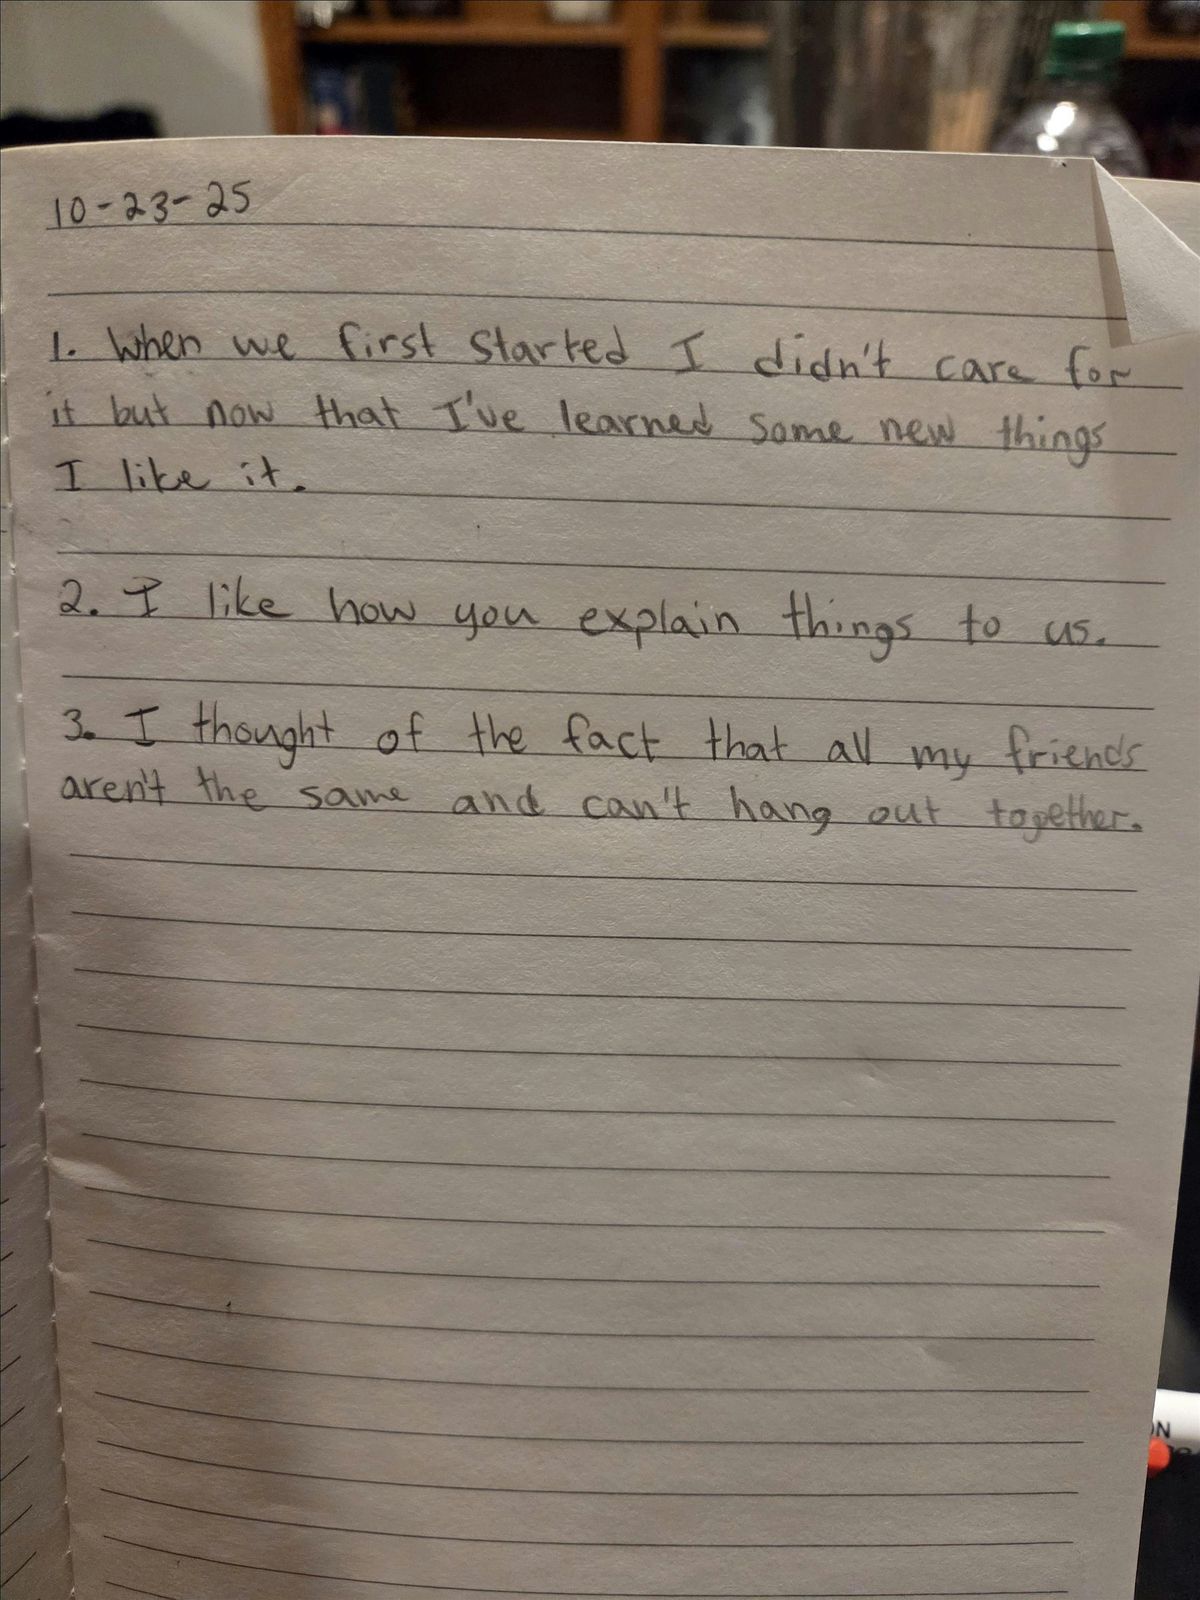 10-23-25
1. When we first started I didn't care for
it but now that I've learned some new things
I like it.
2. I like how you explain things to us.
3. I thought of the fact that all my friends
aren't the same and can't hang out together.
ON